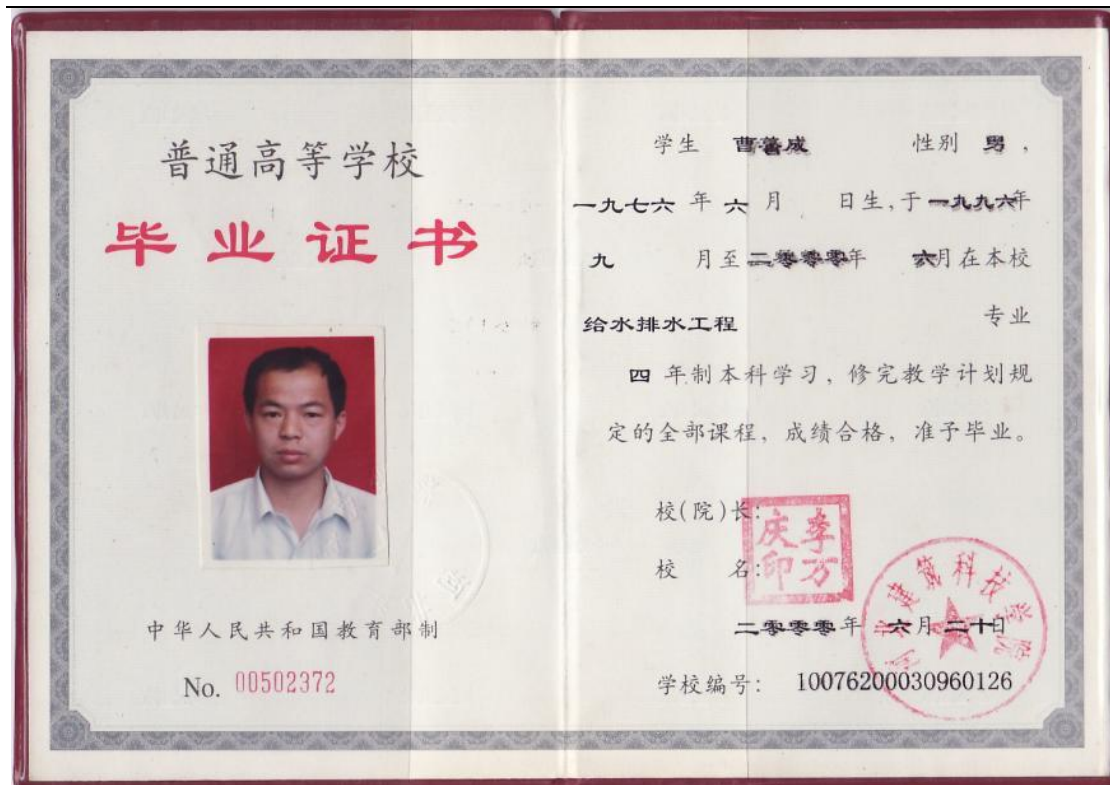 普通高等学校
毕业证书
中华人民共和国教育部制
No. 00502372
学生 曹蕾成 性别 男，
一九七六 年 六 月 日生，于一九九六年
九 月至二零零零年 六月在本校
给水排水工程 专业
四 年制本科学习，修完教学计划规
定的全部课程，成绩合格，准予毕业。
校(院)长：
李万庆印
校 名：
河北建筑科技学院
二零零零年 六月二十日
学校编号： 10076200030960126